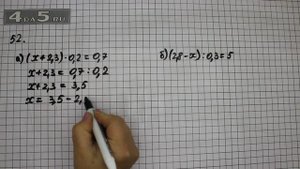 4DA5.RU
52.
а) (x+2,3)·0,2=0,7
x+2,3 = 0,7 : 0,2
x+2,3 = 3,5
x = 3,5 - 2,
б) (2,5-x) : 0,3 = 5